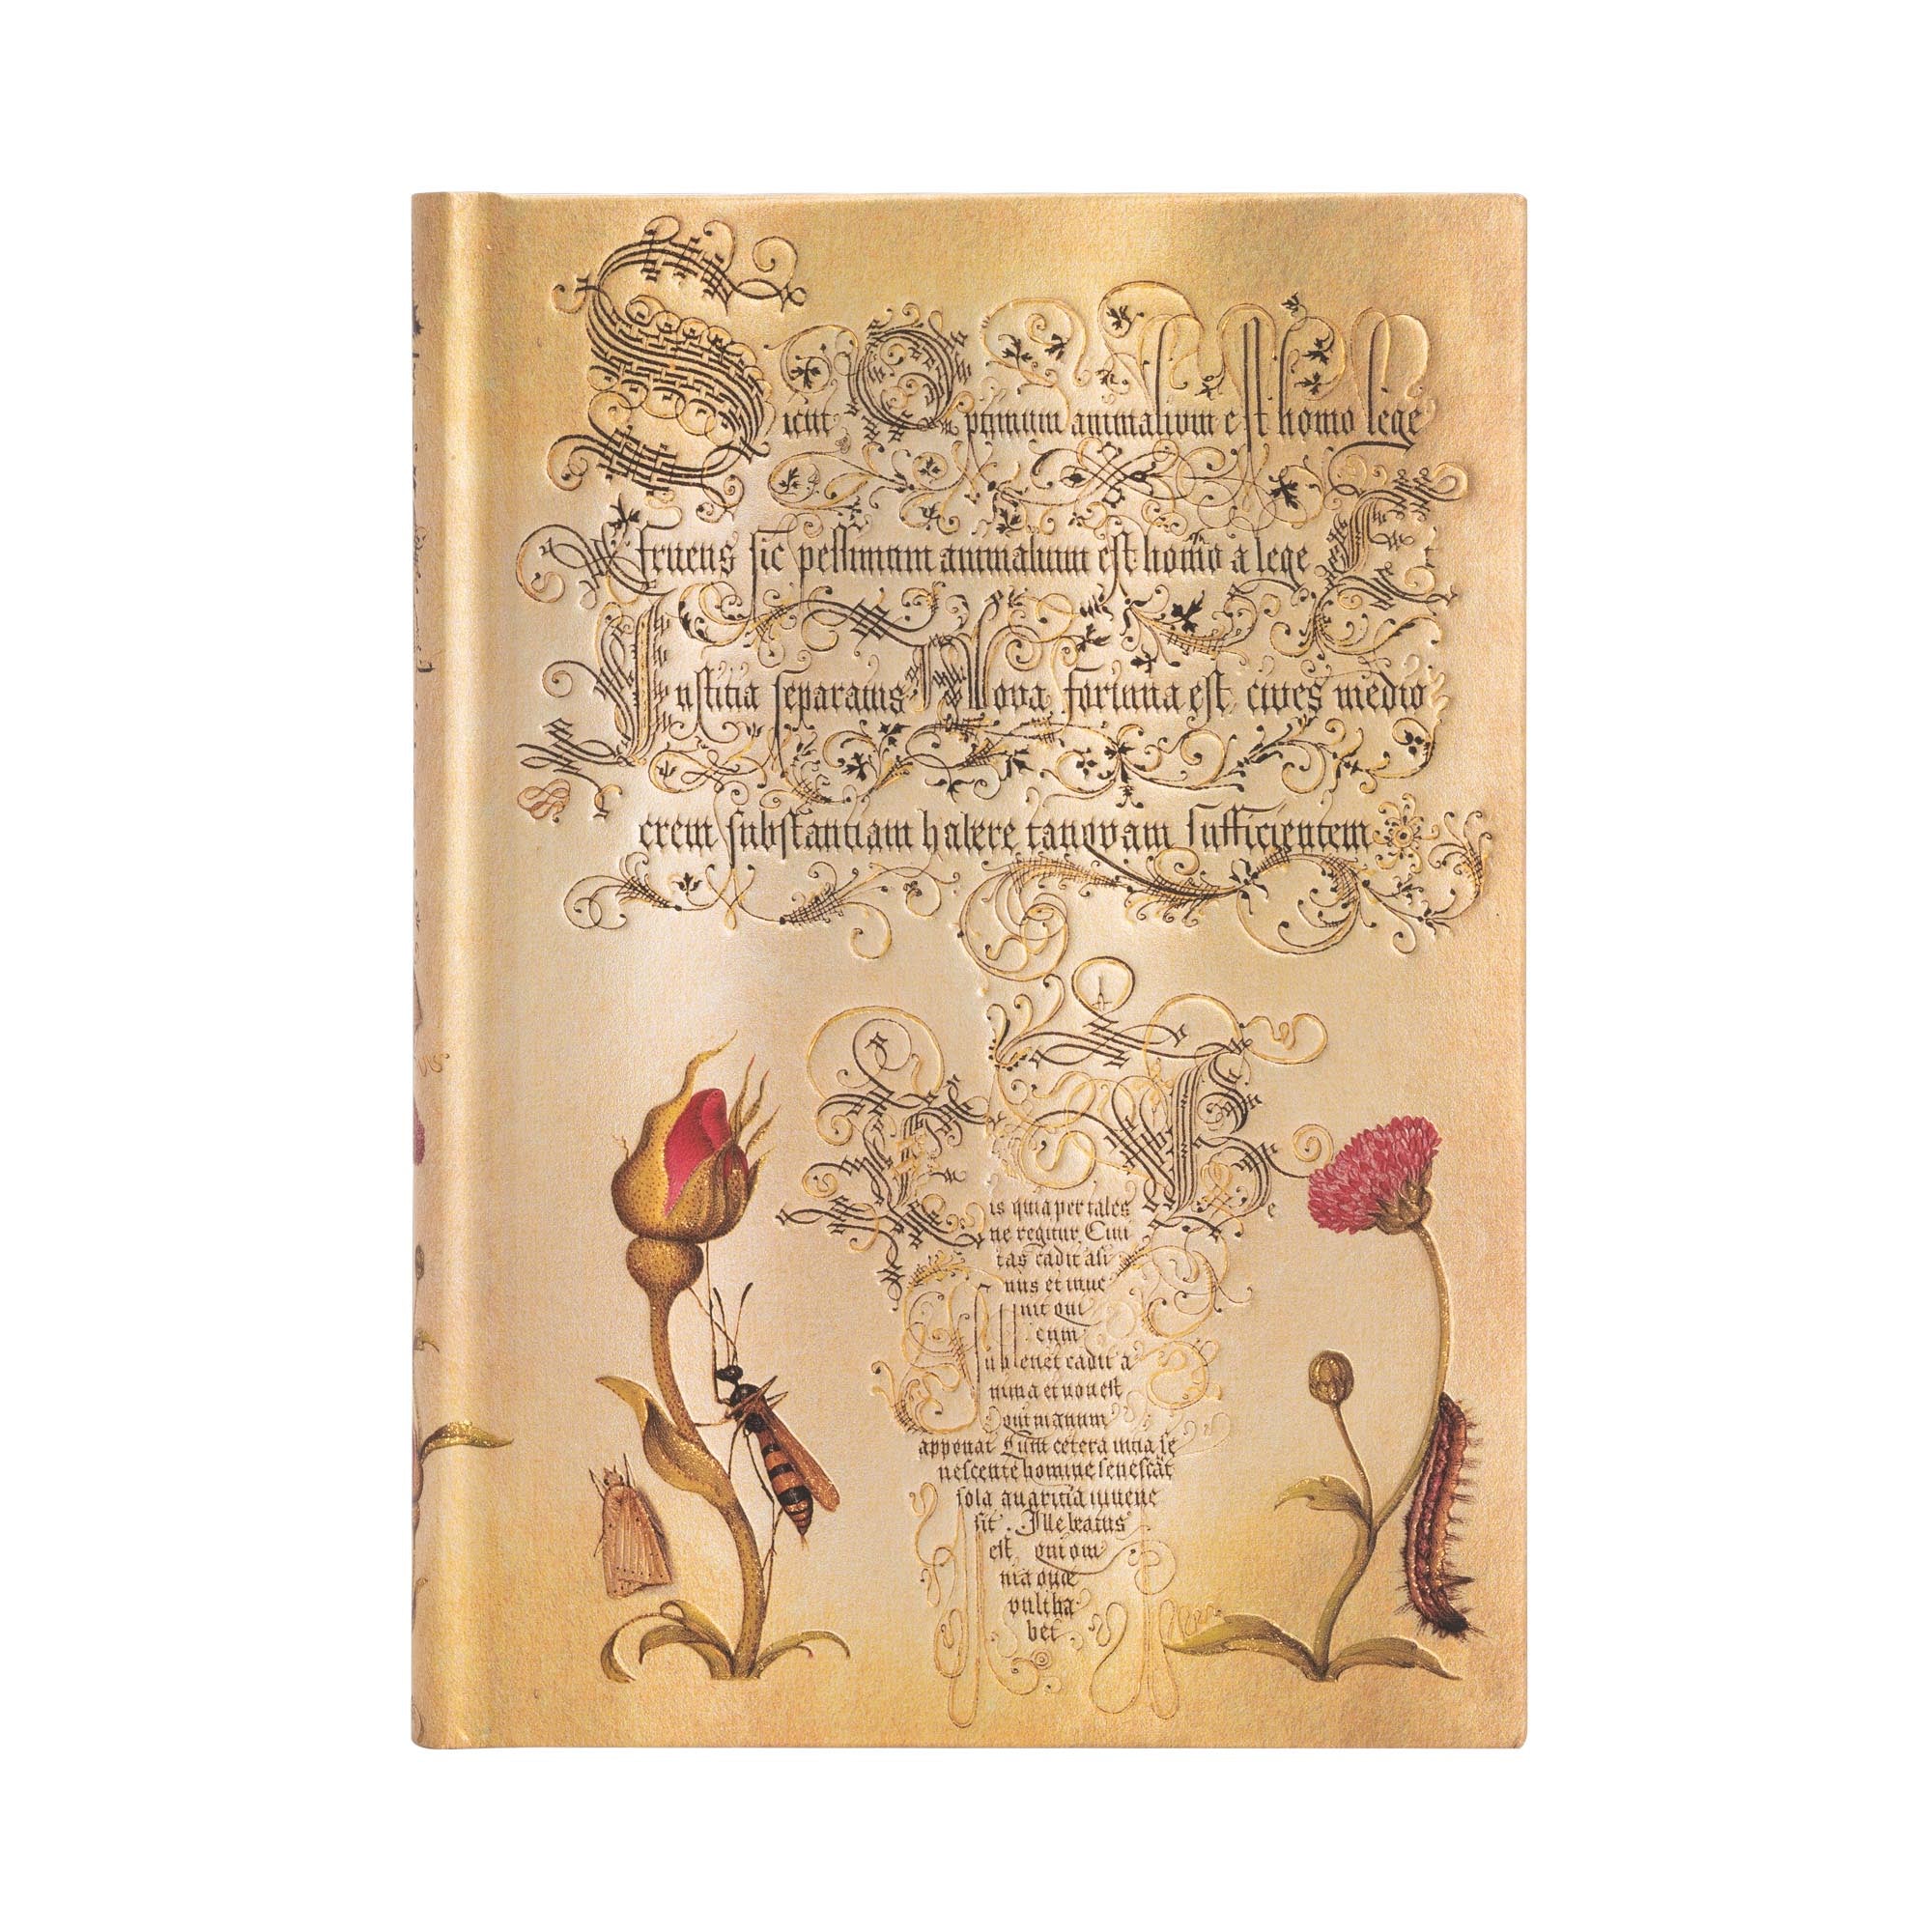 Sicut Optimum animalium est homo lege
fruens sic pessimum animalium est homo a lege Et
Iustitia separatus. Nova fortuna est cives medio
crem substantiam habere tanquam sufficientem
His quia per tales Be
ne regitur Civi
tas cadit asi
nus et inve
nit qui
cum
sublevet cadit a
nima et non est
qui manum
apponat Cum cetera vitia se
nescente homine senescāt
sola avaritia iuvene
sit. Ille beatus
est qui om
nia quæ
vult ha
bet